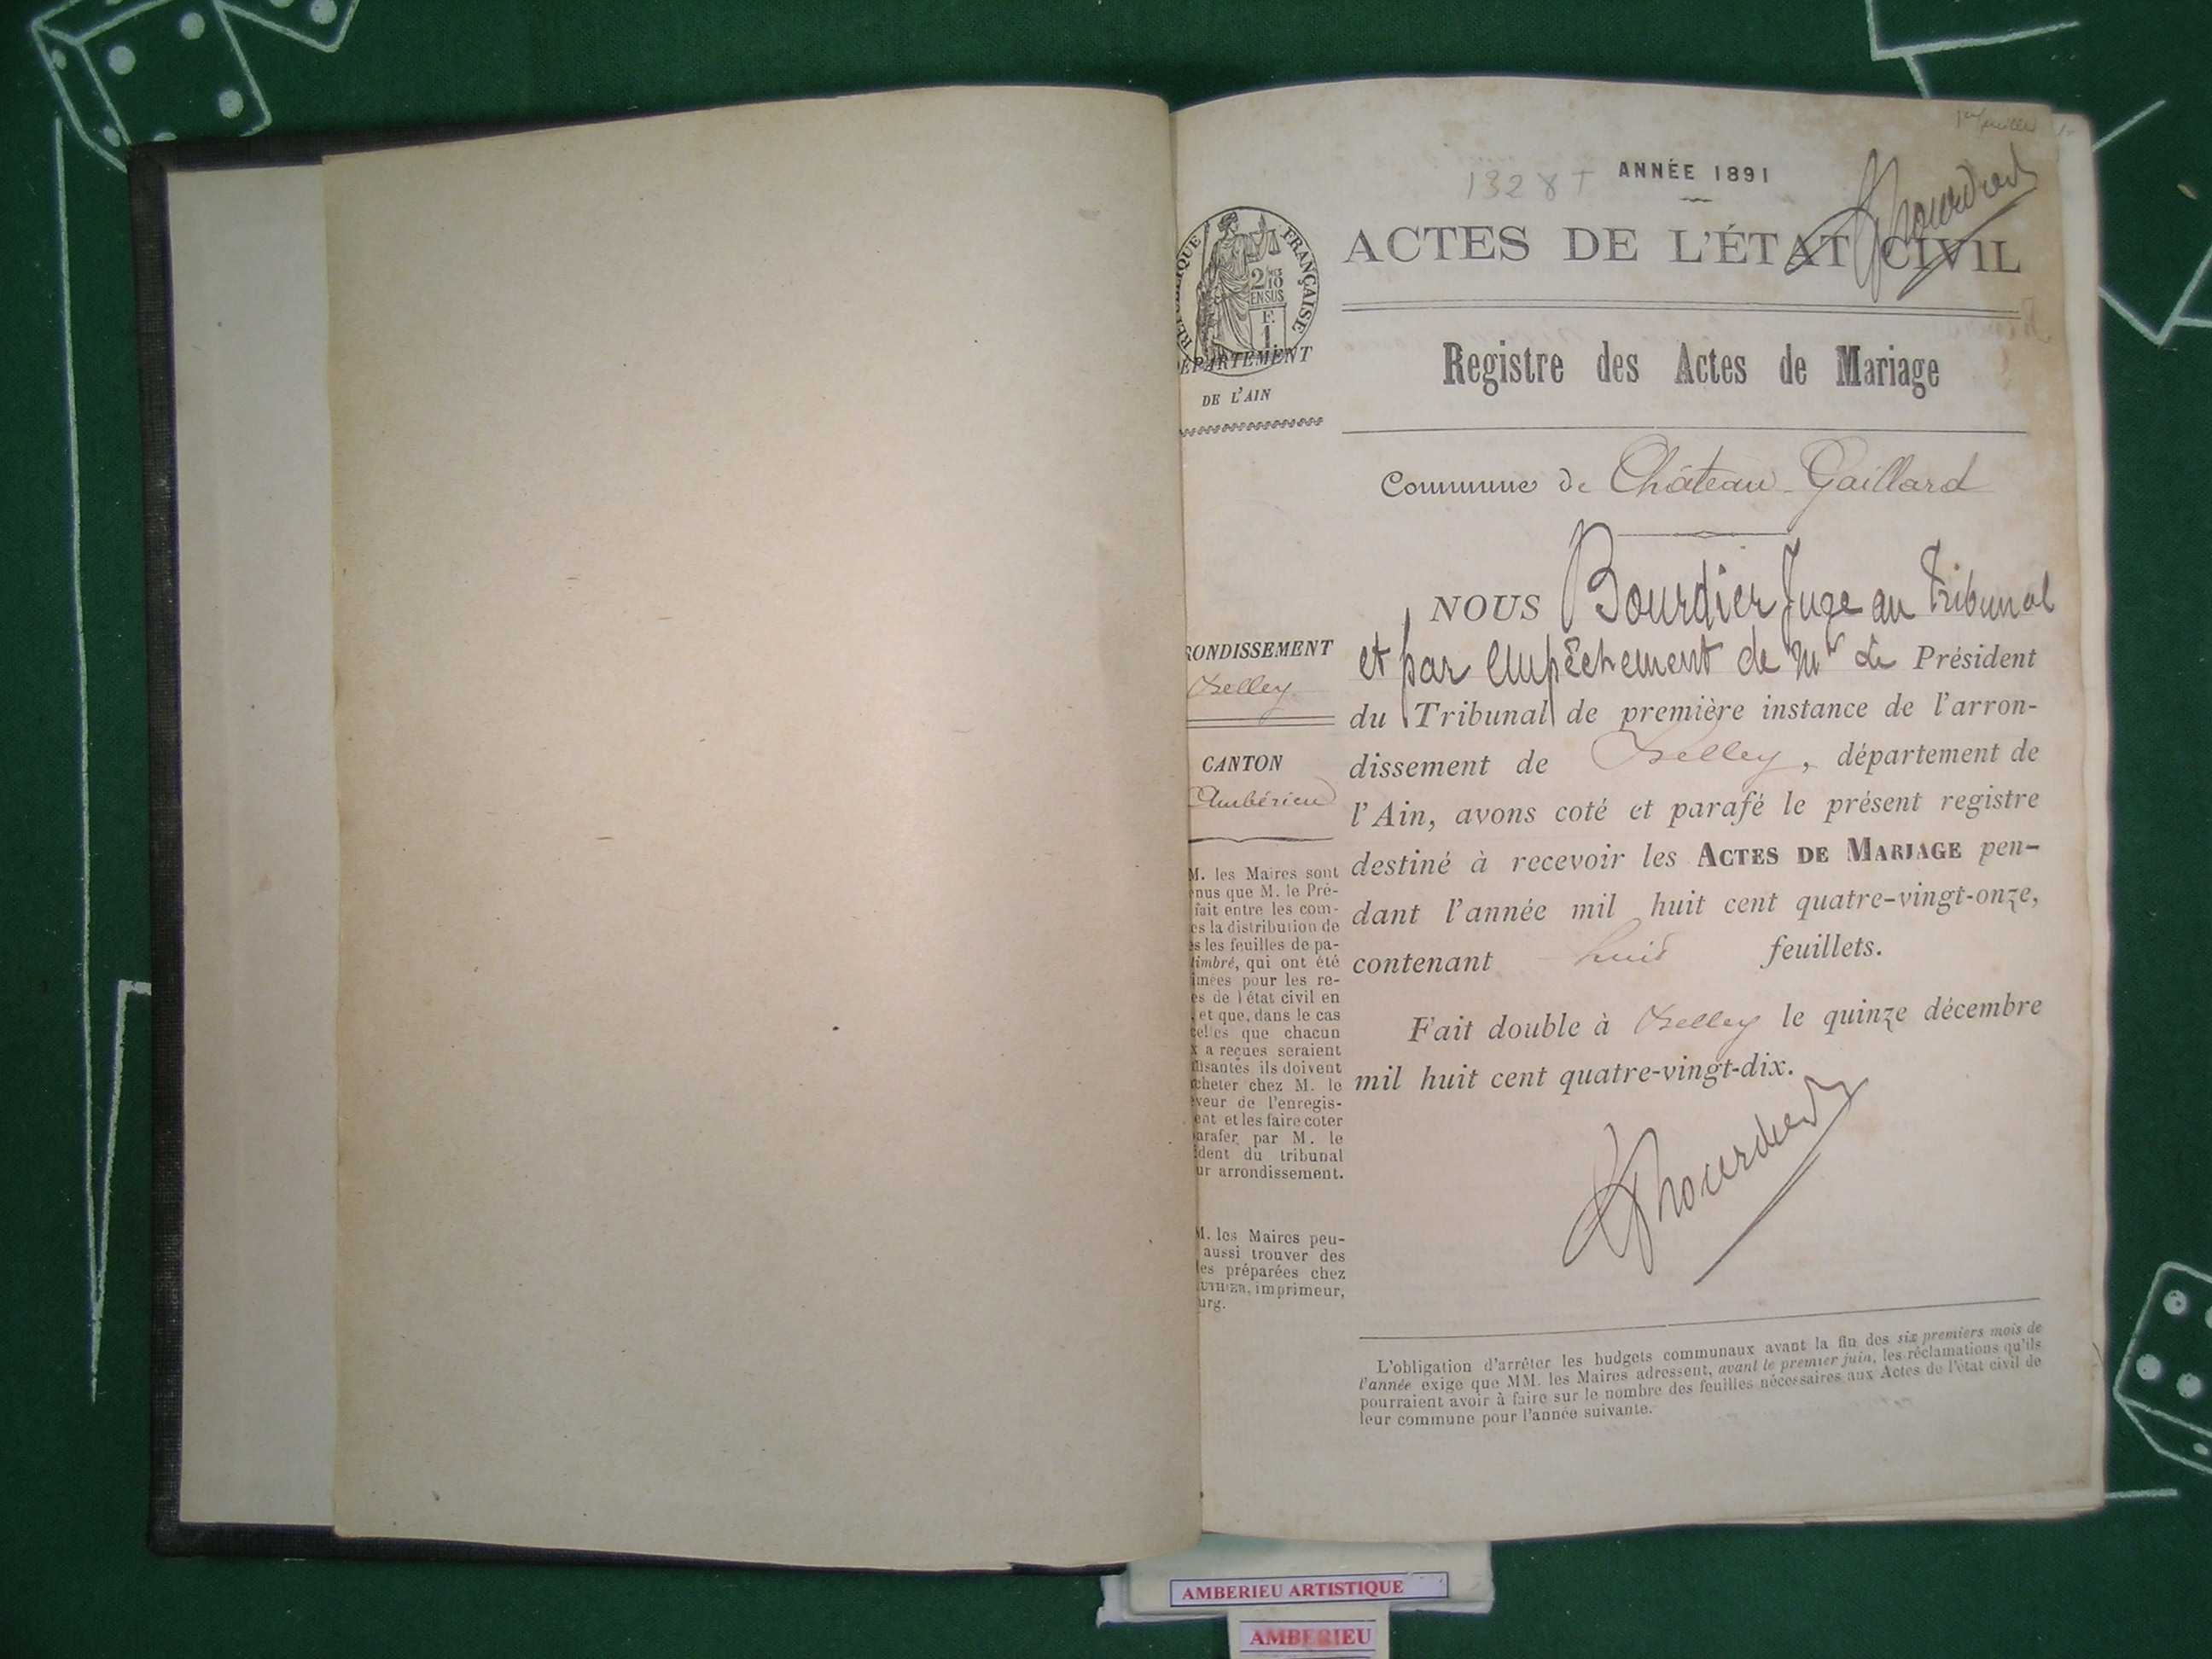 1er feuillet
1328 T
ANNÉE 1891
ACTES DE L'ÉTAT CIVIL
RÉPUBLIQUE FRANÇAISE
2/10 MES
EN SUS
1 F.
DÉPARTEMENT
DE L'AIN
Registre des Actes de Mariage
Commune de Château-Gaillard
NOUS Bourdier Juge au Tribunal
et par empêchement de Mr Le Président
du Tribunal de première instance de l'arron-
dissement de Belley, département de
l'Ain, avons coté et parafé le présent registre
destiné à recevoir les ACTES DE MARIAGE pen-
dant l'année mil huit cent quatre-vingt-onze,
contenant huit feuillets.
Fait double à Belley le quinze décembre
mil huit cent quatre-vingt-dix.
RONDISSEMENT
Belley
CANTON
Ambérieu
M. les Maires sont
nus que M. le Pré-
fait entre les com-
es la distribution de
s les feuilles de pa-
timbré, qui ont été
imées pour les re-
es de l'état civil en
, et que, dans le cas
celles que chacun
x a reçues seraient
ffisantes ils doivent
cheter chez M. le
veur de l'enregis-
ent et les faire coter
arafer par M. le
ident du tribunal
ur arrondissement.
M. les Maires peu-
aussi trouver des
les préparées chez
UTHIER, imprimeur,
urg.
L'obligation d'arrêter les budgets communaux avant la fin des six premiers mois de
l'année exige que MM. les Maires adressent, avant le premier juin, les réclamations qu'ils
pourraient avoir à faire sur le nombre des feuilles nécessaires aux Actes de l'état civil de
leur commune pour l'année suivante.
AMBERIEU ARTISTIQUE
AMBERIEU